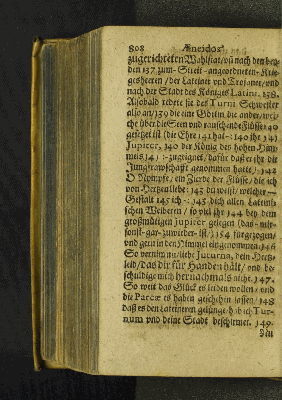 808 Æneidos
zugerichteten Wahlstat/vñ nach den bey-
den 137 zum-Streit-angeordneten-Krie-
gesheeren/der Lateiner und Trojaner/und
nach der Stadt des Königes Latins. 138.
Alsobald redete sie des Turni Schwester
also an/139 die eine Göttin die ander/wel-
che über die Seen und rauschende Flüsse 140
gesetzt ist (die Ehre 141 hat 140 ihr 141
Jupiter, 140 der König des hohen Him-
mels 141 zugeeignet/dafür daß er ihr die
Jungfrawschafft genommen hatte) 142
O Nymphe/ein Zierde der Flüsse/die ich
von Hertzen liebe: 143 du weist/welcher
Gestalt 145 ich 143 dich allen Lateini-
schen Weiberen/so viel ihr 144 bey dem
großmütigen Jupiter gelegen (das
sonst gar-zuwieder-ist) 154 fürgezogen/
und gern in den Himmel eingenommen. 146
So vernim nu/liebe Juturna, dein Hertz-
leid/das dir für Handen hält/und be-
schuldige mich hernachmals nicht. 147.
So weit das Glück es leiden wollen/und
die Parcæ es haben geschehen lassen/148
daß es den Lateineren gelünge/hab ich Tur-
num und deine Stadt beschirmet. 149.